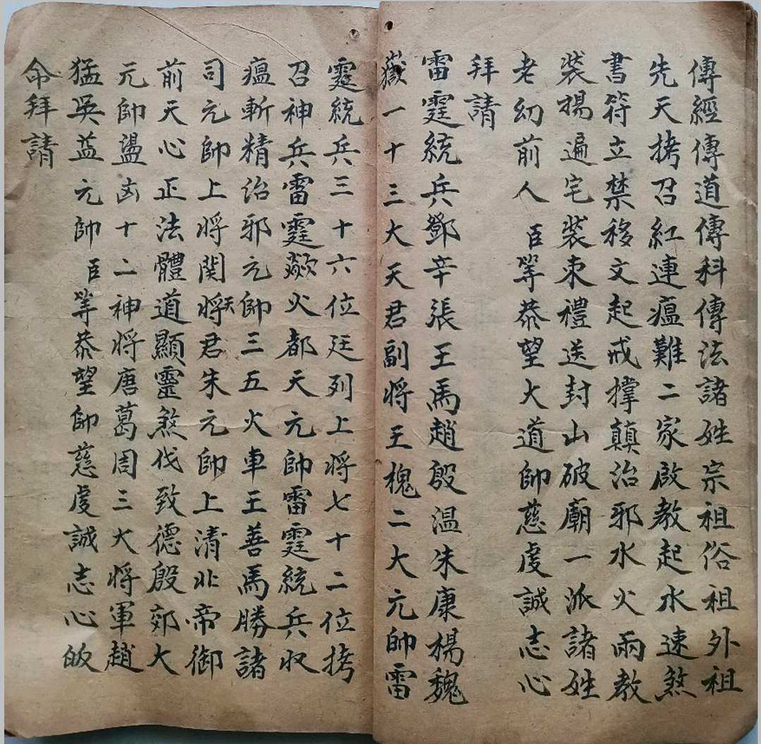 傳經傳道傳科傳法諸姓宗祖俗祖外祖
先天拷召紅連瘟難二家啟教起水速煞
書符立禁移文起戒撑顛治邪水火兩教
裝揚遍宅裝束禮送封山破廟一派諸姓
老幻前人臣等恭望大道帥慈虔誠志心
拜請
雷霆統兵鄧辛張王馬趙殷温朱康楊魏
嶽一十三大天君副將王槐二大元帥雷
霆統兵三十六位廷列上将七十二位拷
召神兵雷霆歘火都天元帥雷霆統兵收
瘟斬精治邪元帥三五火車王善馬勝諸
司元帥上将関天將君朱元帥上清北帝御
前天心正法體道顯靈煞伐致德殷郊大
元帥盪凶十二神将唐葛周三大将軍趙
猛吳蓝元帥臣等恭望師慈虔誠志心皈
命拜請